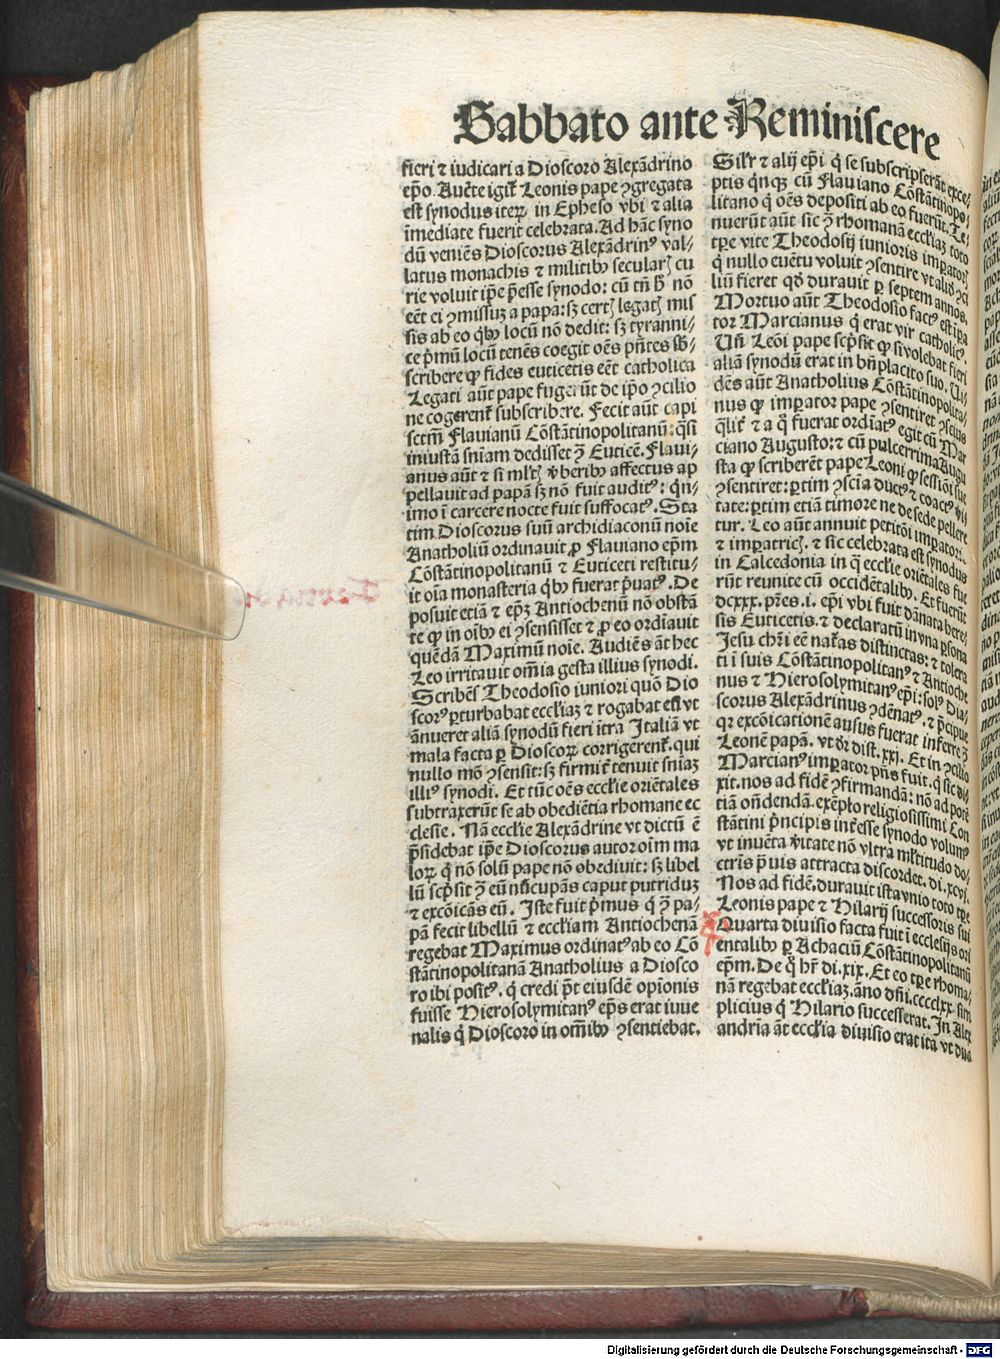 Sabbato ante Reminiscere
fieri ⁊ iudicari a Dioscoro Alexãdrino
ep̃o. Auc̃te igit̃ Leonis pape ꝯgregata
est synodus iteꝝ in Epheso vbi ⁊ alia
ĩmediate fuerit celebrata. Ad hãc syno
dũ veniẽs Dioscorus Alexãdrinꝰ val⸗
latus monachis ⁊ militibꝰ seculariũ cu
rie voluit ip̃e p̃esse synodo: cũ tñ h̾ nõ
eẽt ei ꝯmissuꝫ a papa: sꝫ certꝭ legatꝭ mis
sis ab eo qͥbꝰ locũ nõ dedit: sꝫ tyranni⸗
ce pͥmũ locũ tenẽs coegit oẽs p̃ntes sb̾⸗
scribere ꝙ fides euticetis eẽt catholica
Legati aũt pape fugerũt de ip̃o ꝯcilio
ne cogerenť subscribere. Fecit aũt capi
sctm̃ Flauianũ Cõstãtinopolitanũ: qͣsi
iniustã sn̄iam dedisset ꝯ̃ Euticẽ. Flaui⸗
anus aũt ⁊ si ml̾tꝭ v̾beribꝰ affectus ap
pellauit ad papã sꝫ nõ fuit auditꝰ: qͥn⸗
imo ĩ carcere nocte fuit suffocatꝰ. Sta
tim Dioscorus suũ archidiaconũ noĩe
Anatholiũ ordinauit ꝓ Flauiano ep̃m
Cõstãtinopolitanũ ⁊ Euticeti restitu⸗
it oĩa monasteria qͥbꝰ fuerat pͥuatꝰ. De
posuit etiã ⁊ ep̃ꝫ Antiochenũ nõ obstã
te ꝙ in oĩbꝰ ei ꝯsensisset ⁊ ꝓ eo ordĩauit
quẽdã Maximũ noĩe. Audiẽs aũt hec
Leo irritauit om̃ia gesta illius synodi.
Scribẽs Theodosio iuniori quõ Dio
scorꝰ ꝑturbabat eccl̃iaꝫ ⁊ rogabat eũ vt
ãnueret aliã synodũ fieri ĩtra Italiã vt
mala facta ꝑ Dioscoꝝ corrigerenť. qui
nullo mõ ꝯsensit: sꝫ firmiť tenuit sn̄iaꝫ
illiꝰ synodi. Et tũc oẽs eccl̃ie oriẽtales
subtraxerũt se ab obediẽtia rhomane ec
clesie. Nã eccl̃ie Alexãdrine vt dictũ ẽ
p̃sidebat ip̃e Dioscorus autor oĩm ma
loꝝ qͥ nõ solũ pape nõ obediuit: sꝫ libel
lũ scp̾sit ꝯ̃ eũ nũcupãs caput putriduꝫ
⁊ excõicãs eũ. Iste fuit pͥmus qͥ ꝯ̃ pa⸗
pã fecit libellũ ⁊ eccl̃iam Antiochenã
regebat Maximus ordinatꝰ ab eo Cõ
stãtinopolitanã Anatholius a Diosco
ro ibi positꝰ. qͥ credi põt eiusdẽ opionis
fuisse Hierosolymitanꝰ ep̃s erat iuue
nalis qͥ Dioscoro in om̃ibꝰ ꝯsentiebat.
Silʼr ⁊ alij ep̃i qͥ se subscripserãt exce⸗
ptis qͥnqꝫ cũ Flauiano Cõstãtinopo⸗
litano qͥ oẽs depositi ab eo fuerũt. Te⸗
nuerũt aũt sic ꝯ̃ rhomanã eccl̃iaꝫ toto
tꝑe vite Theodosij iunioris imꝑatorꝭ
qͥ nullo euẽtu voluit ꝯsentire vt aliõ ꝯci
liũ fieret qd̾ durauit ꝑ septem annos.
Mortuo aũt Theodosio factꝰ est imꝑa
tor Marcianus qͥ erat vir catholicꝰ.
Uñ Leõi pape scp̾sit ꝙ si volebat fieri
aliã synodũ erat in bñplacito suo. Ui⸗
dẽs aũt Anatholius Cõstãtinopolita⸗
nus ꝙ imꝑator pape ꝯsentiret ꝯscius
qͣliť ⁊ a qͦ fuerat ordĩatꝰ egit cũ Mar
ciano Augusto: ⁊ cũ pulcerrima Augu
sta ꝙ scriberẽt pape Leoni ꝙ sessiõi sue
ꝯsentiret: ꝑtim ꝯscia ductꝰ ⁊ coactꝰ v̾i⸗
tate: ꝑtim etiã timore ne de sede pellere
tur. Leo aũt annuit petitõi imꝑatori.
⁊ imꝑatricꝭ. ⁊ sic celebrata est synodus
in Calcedonia in qͣ eccl̃ie oriẽtales fue
rũt reunite cũ occidẽtalibꝰ. Et fuerũt
dcxxx. p̃res .i. ep̃i vbi fuit dãnata here⸗
sis Euticetis. ⁊ declaratũ in vna ꝑsona
Jesu chr̃i eẽ nat̾as distinctas: ⁊ tolera
ti ĩ suis Cõstãtinopolitanꝰ ⁊ Antioche
nus ⁊ Hierosolymitanꝰ ep̃i: solꝰ Dia⸗
scorus Alexãdrinus ꝯdẽnatꝰ. ⁊ p̃cipue
qꝛ excõicationẽ ausus fuerat inferre ꝯ̃
Leonẽ papã. vt dr̃ dist. xxj. Et in ꝯcilio
Marcianꝰ imꝑator p̃ns fuit. qͥ sic di⸗
xit. nos ad fidẽ ꝯfirmandã: nõ ad potẽ
tiã oñdendã. exẽplo religiosissimi Con
stãtini pͥncipis inťesse synodo volumꝰ
vt inuẽta v̾itate nõ vltra ml̾titudo do⸗
ctris p̃uis attracta discordet. di. xcvj.
Nos ad fidẽ. durauit ista vnio toto tꝑe
Leonis pape ⁊ Hilarij successoris sui
Quarta diuisio facta fuit ĩ ecclesijs ori
entalibꝰ ꝑ Achaciũ Cõstãtinopolitanũ
ep̃m. De qͦ hr̃ di. xix. Et eo tꝑe rhoma⸗
nã regebat eccl̃iaꝫ. ãno dñi .cccclxx. sim
plicius qͥ Hilario successerat. In Alex
andria ãt eccl̃ia diuisio erat ita vt duo
Digitalisierung gefördert durch die Deutsche Forschungsgemeinschaft - DFG